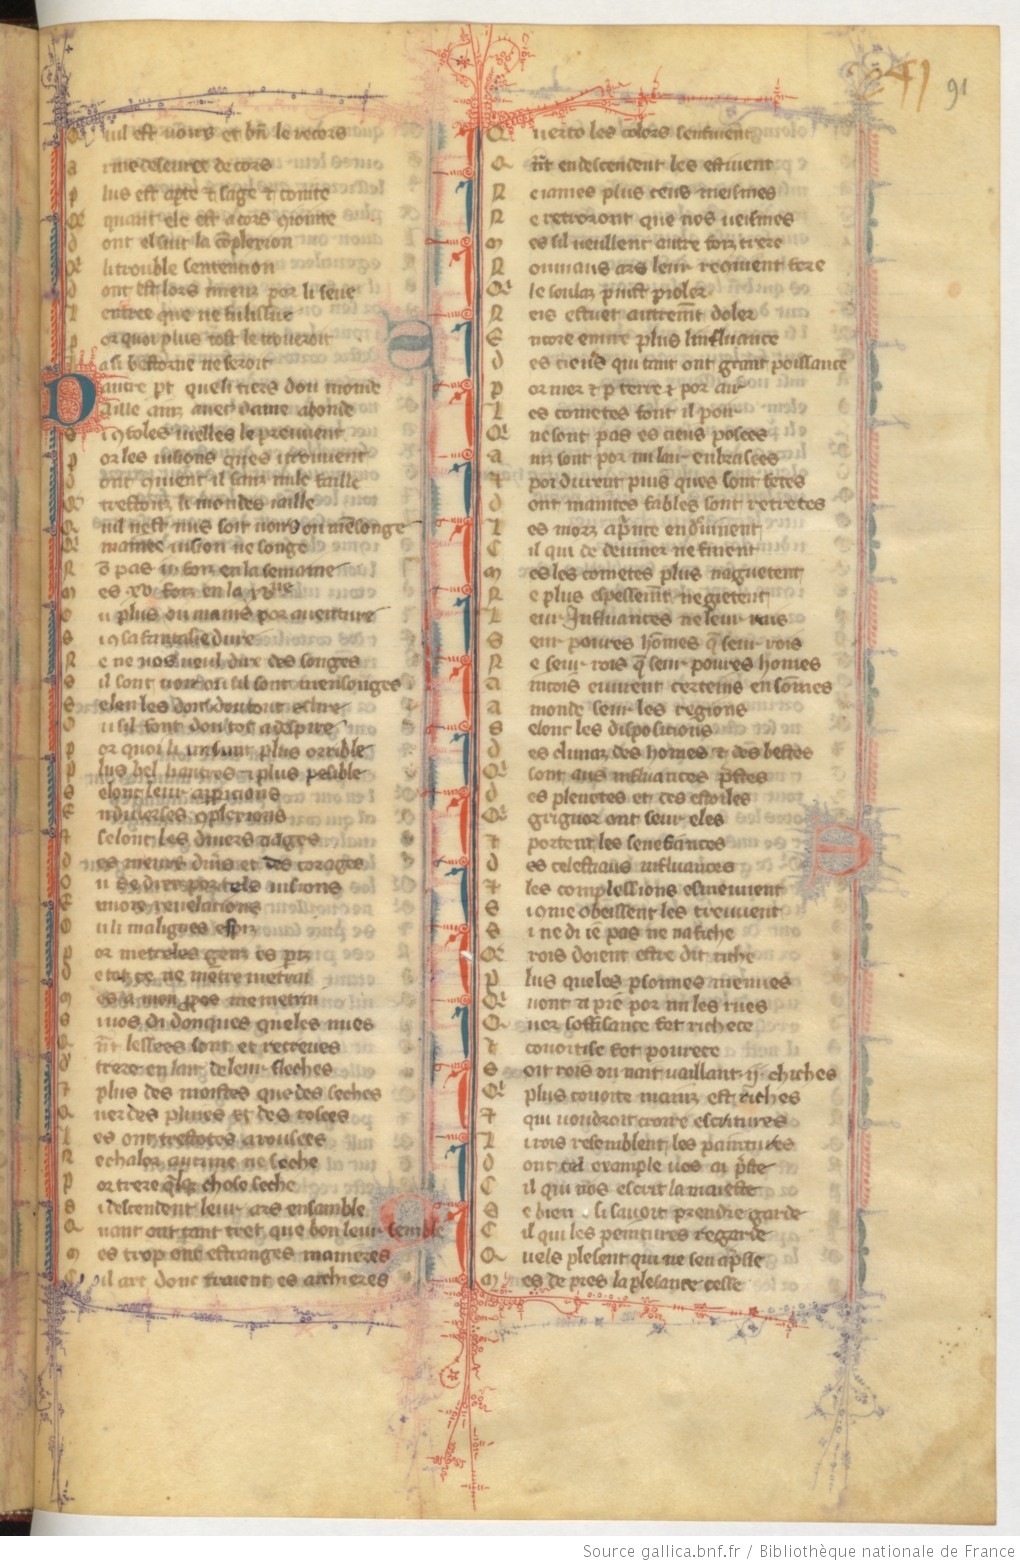 241
91
Quil est voirs et bn le recors
ame deseuree de cors
plus est apte & sage & cointe
Que quant ele est a cors iointe
dont el suit la complexion
Qi li trouble sentention
dont est lors mieuz por li seue
lentree que ne fu lissue
por quoi plus tost le troueroit
ia si bestorne ne seroit
Dautre pt que li tiers dou monde
aille ainz auec dame abonde
si com foles vielles le prennent
por les visions ques i troevent
dont quient il sanz nule faille
Qe trestouz li mondes i aille
Quil nest nus soit voirs ou mensonge
Qi mainte vision ne songe
Non pas iii foiz en la semaine
mes xv foiz en la xvne
ou plus ou mains por auenture
si com la fantasie dure
Ne ne vos vueil dire des songes
sil sont voir ou sil sont mensonges
selen les doit dou tout eslire
ou sil font dou tot a despire
por quoi li un sunt plus orrible
plus bel li autres & plus pesible
selonc leur apparicions
En diuerses complexions
& selonc les diuers aages
des meurs diuers et des corages
ou se diex por tels visions
Enuoie reuelations
ou li malignes esperiz
por metre les genz es periz
de tot ce ne metre metrai
mes a mon propos me metrai
Si vos di donques que les nues
Quant lassees sont et recreues
de trere en lair de leur fleches
& plus des moistes que des seches
Quer des pluies et des rosees
Les ont trestotes arousees
Se chalor aucune ne seche
por trere quelque chose seche
Si descendent leur ars ensamble
Quant ont tant tret que bon leur semble
mes trop ont estranges manieres
Cil arc dont traient es archieres
Quer to les colors senfuient
Quant en descendent les estuient
Ne iames plus ceus meismes
Ne retrorront que nos veismes
mes sil veullent autre foiz trere
Nouviaus ars leur reconient fere
Qe le soulaz puist pioler
Neis estuet autrement doler
Encore euure plus linfluance
des ciels qui tant ont grant poissance
por mer & p terre & por air
Les cometes font il por
Qi ne sont pas es ciels posees
ainz sont por mi lair enbrasees
& poi durent puis ques sont fetes
dont maintes fables sont retretes
Les morz a prince en diuinent
Cil qui de deuiner ne finent
mes les cometes plus naguetent
Ne plus espessement ne gietent
Leur Influances ne leur rais
Seur poures homes q seur rois
Ne seur rois q seur poures homes
aincois euurent certeins en somes
au monde seur les regions
Selonc les dispositions
des climaz des homes & des bestes
Qi sont aus influances prestes
des planetes et des estoiles
Qe greigneur ont seur eles
& portent les senefiances
des celestiaus influances
& les complessions esmeuuent
Si come obeissent les treuuent
Si ne di ie pas ne nafiche
Qe rois doient estre dit riche
Plus que les persones menues
Qi vont a pie por mi les rues
Quer soffisance fet richece
& couoitise fet pourete
Soit rois ou nait vaillant ii chiches
Qi plus couoite mainz est riches
& qui voudroit croire escritures
Li rois resemblent les paintures
dont tel example nos apreste
Cil qui nos escrit lamageste
Se bien i savoit prendre garde
Cil qui les peintures regarde
Quels plesent qui ne sen apresse
mes de pres la plesance cesse
Source gallica.bnf.fr / Bibliothèque nationale de France